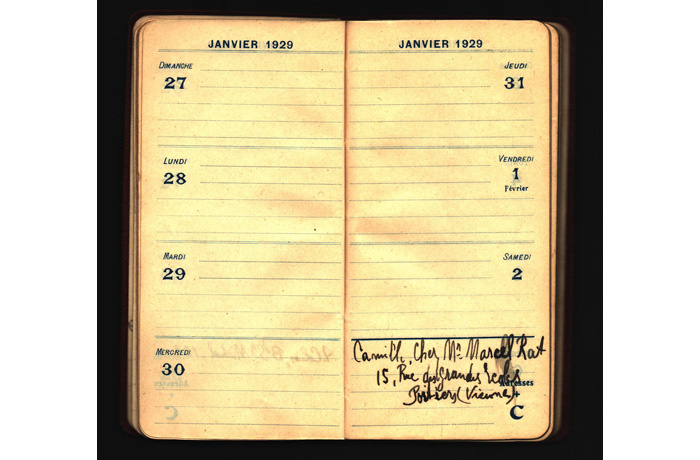 JANVIER 1929
DIMANCHE
27
LUNDI
28
MARDI
29
MERCREDI
30
Adresses
C
JANVIER 1929
JEUDI
31
VENDREDI
1
Février
SAMEDI
2
Camille, chez Mr Marcel Rat
15, Rue des Grandes Ecoles
Poitiers (Vienne)
Adresses
C